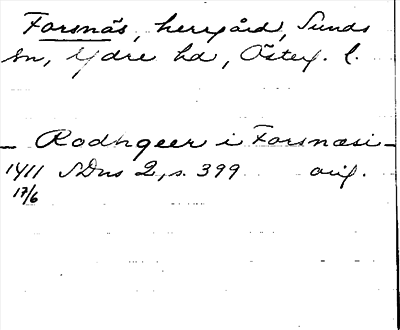 Forsnäs, herrgård, Sunds
sn, Ydre hd, Österg. l.
_ Rodhgeer i Forsnæsi _
1411 SDns 2, s. 399 orig.
17/6